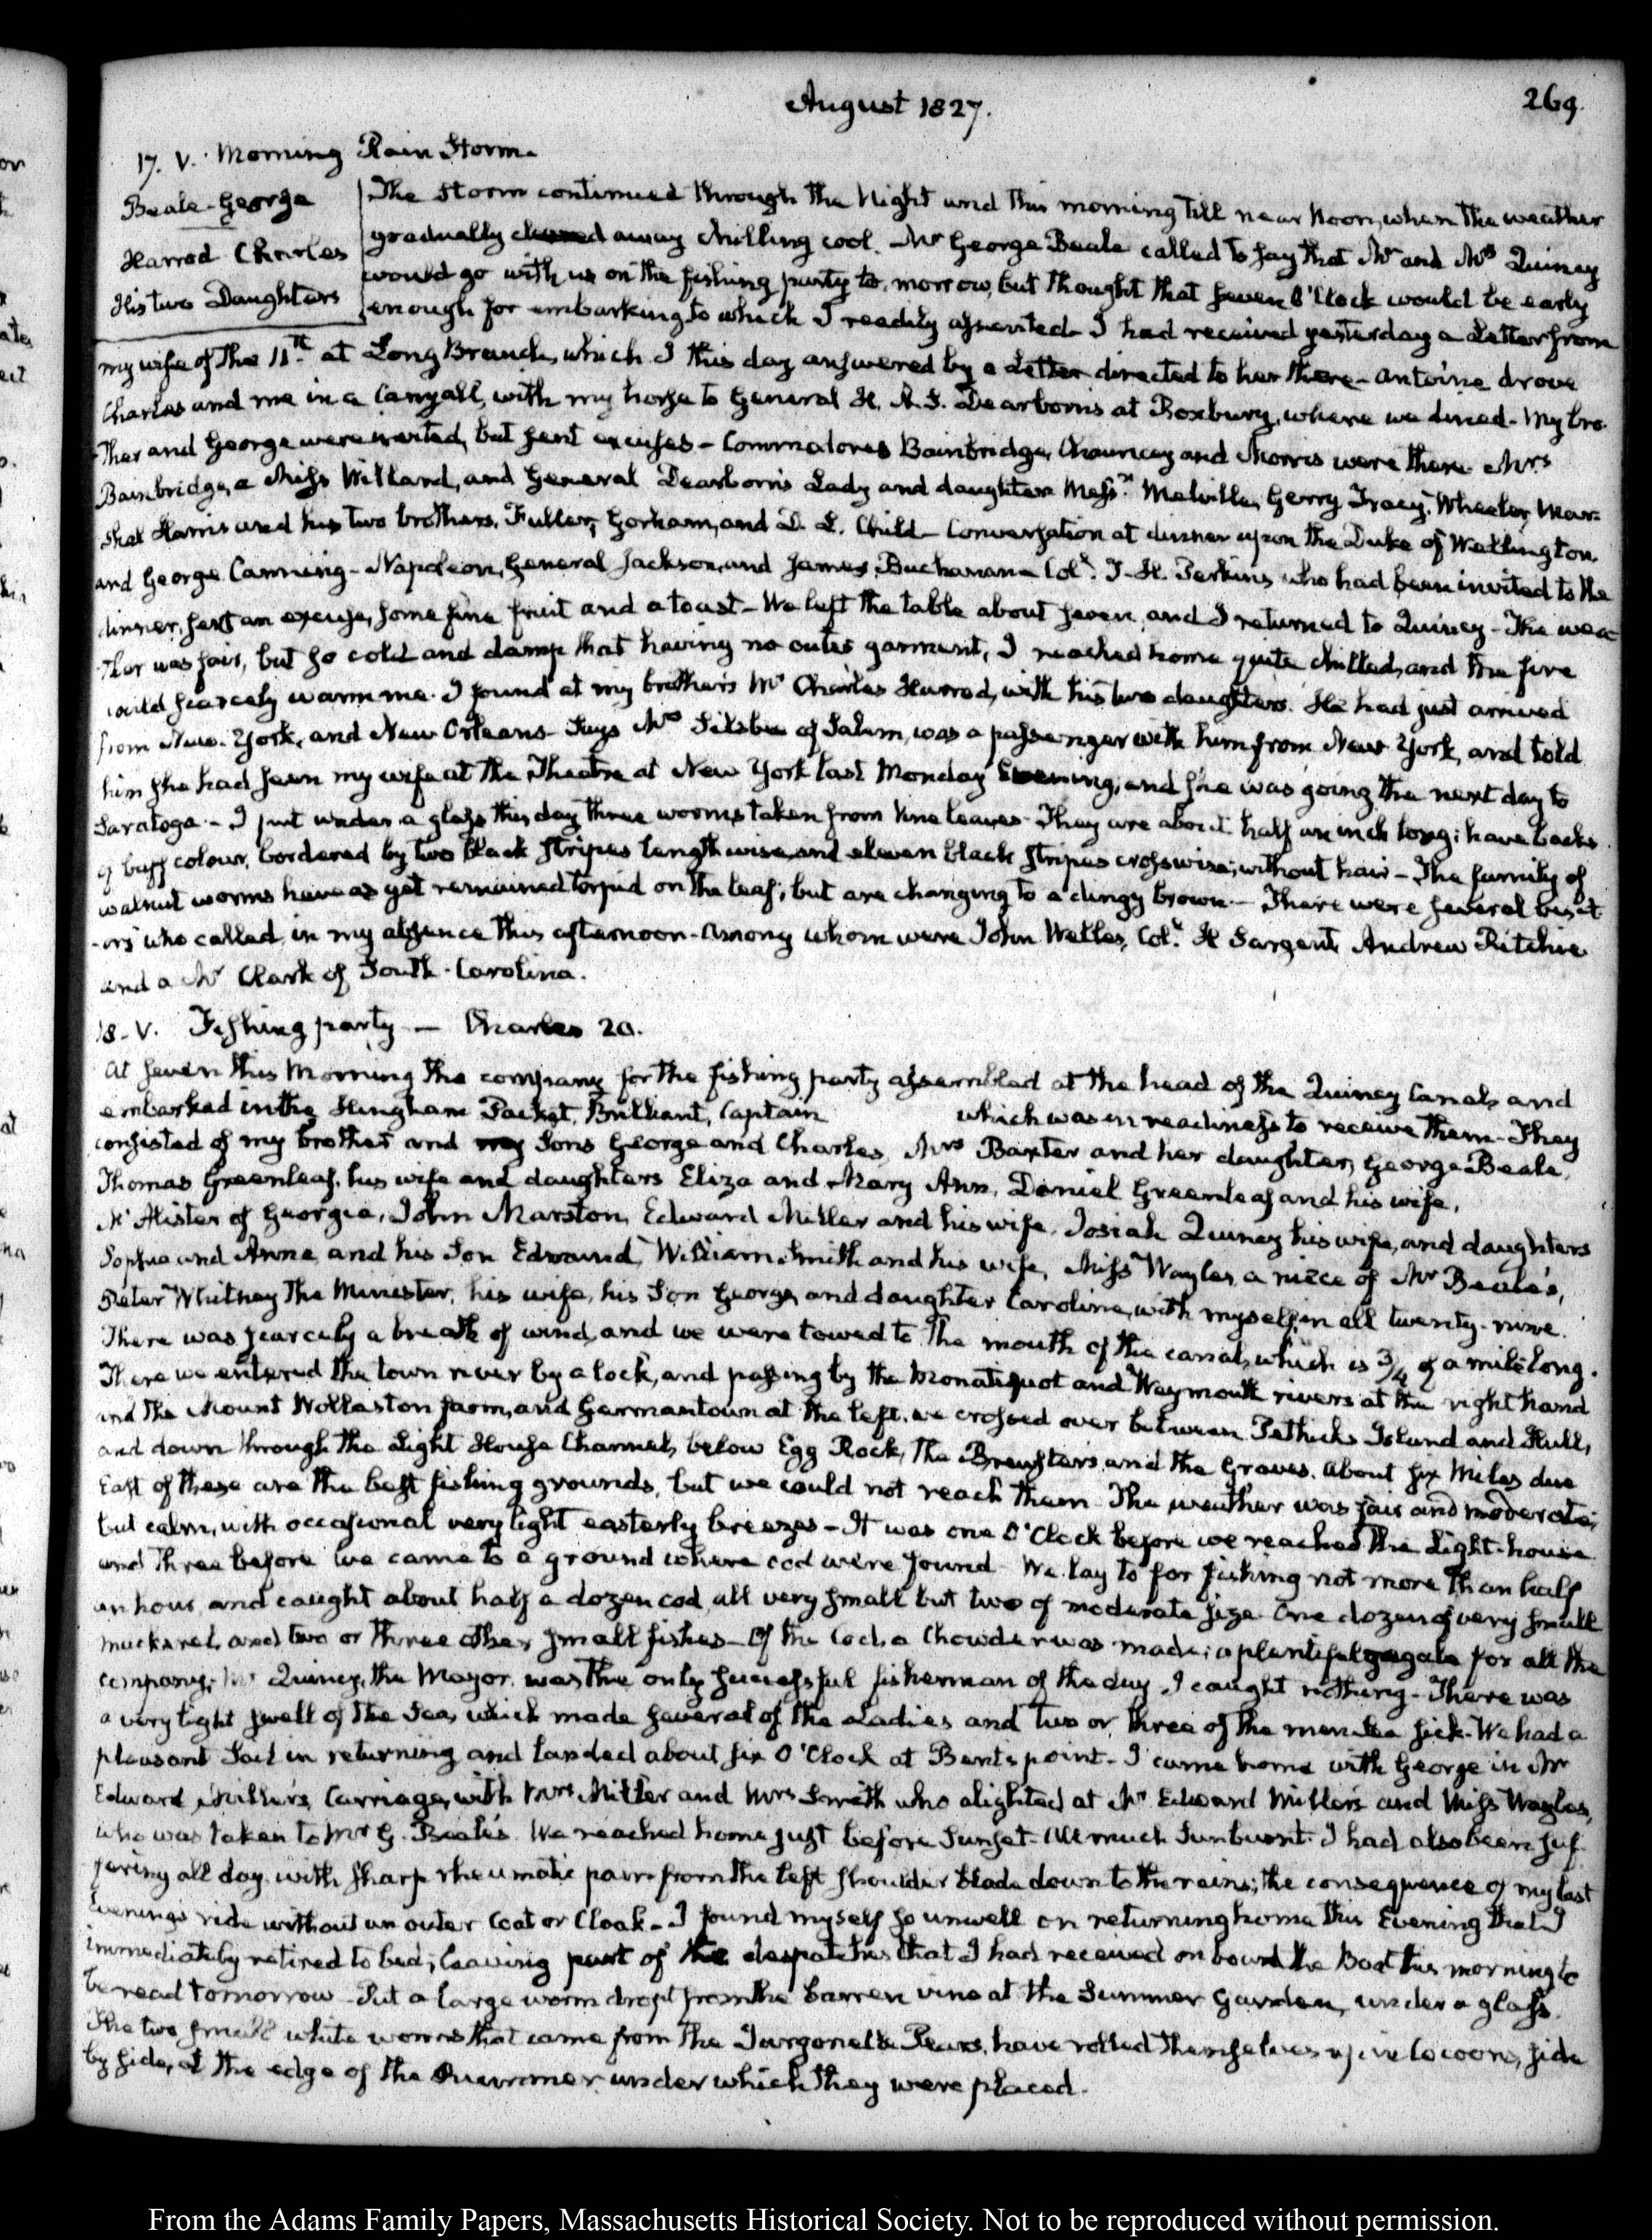 August 1827.
269.
17. V. Morning Rain Storm.
Beale. George
Harrod Charles
His two Daughters
The Storm continued through the Night and this morning till near Noon, when the weather
gradually cleared away chilling cool. Mr George Beale called to say that Mr and Mrs Quincy
would go with us on the fishing party to-morrow, but thought that seven O'Clock would be early
enough for embarking to which I readily assented. I had received yesterday a Letter from
my wife of the 11th at Long Branch, which I this day answered by a Letter directed to her there - Antoine drove
Charles and me in a Caryall, with my horse to General H. A. S. Dearborn's at Roxbury, where we dined. My bro-
ther and George were invited, but sent excuses - Commodores Bainbridge, Chauncey and Morris were there Mrs
Bainbridge, a Miss Willard, and General Dearborn's Lady and daughter. Messrs Melville, Gerry, Tracy, Wheeler, Mar-
shal Harris and his two brothers, Fuller, Gorham, and D. L. Child - Conversation at dinner upon the Duke of Wellington
and George Canning - Napoleon, General Jackson, and James Buchanan - Coll. T. H. Perkins who had been invited to the
dinner, sent an excuse, some fine fruit and a toast - We left the table about seven, and I returned to Quincy - The wea-
ther was fair, but so cold and damp that having no outer garment, I reached home quite chilled, and the fire
could scarcely warm me. I found at my brother's Mr Charles Harrod, with his two daughters. He had just arrived
from New-York, and New Orleans - Says Mrs Silsbee of Salem, was a passenger with him from New York, and told
him she had seen my wife at the Theatre at New York last Monday Evening, and she was going the next day to
Saratoga - I put under a glass this day three worms taken from Vine leaves. They are about half an inch long; have backs
of buff colour, bordered by two black stripes lengthwise, and eleven black stripes crosswise; without hair - The family of
walnut worms have as yet remained torpid on the leaf; but are changing to a dingy brown. - There were several visit-
-ors who called in my absence this afternoon - Among whom were John Welles, Coll. H Sargent, Andrew Ritchie
and a Mr Clark of South-Carolina.
18. V. Fishing party - Charles 20.
At seven this Morning the company for the fishing party assembled at the head of the Quincy Canal, and
embarked in the Hingham Packet, Brilliant, Captain which was in readiness to receive them - They
consisted of my brother and my Sons George and Charles, Mrs Baxter and her daughter, George Beale,
Thomas Greenleaf, his wife and daughters Eliza and Mary Ann, Daniel Greenleaf and his wife,
Mc Alister of Georgia, John Marston, Edward Miller and his wife, Josiah Quincy his wife, and daughters
Sophia and Anna and his Son Edmund, William Smith and his wife, Miss Wayles, a niece of Mr Beale's,
Peter Whitney the Minister, his wife, his Son George, and daughter Caroline, with myself, in all twenty-nine.
There was scarcely a breath of wind, and we were towed to the mouth of the canal, which is 3/4 of a mile long.
There we entered the town river by a lock, and passing by the Monatiquot and Weymouth rivers at the right hand
and the Mount Wollaston farm, and Germantown at the left, we crossed over between Pethicks Island and Hull,
and down through the Light House Channel, below Egg Rock, the Brewsters and the Graves. About six Miles due
East of these are the best fishing grounds, but we could not reach them. The weather was fair and moderate;
but calm, with occasional very light easterly breezes - It was one O'Clock before we reached the Light-house
and three before we came to a ground where cod were found. We lay to for fishing not more than half
an hour, and caught about half a dozen cod, all very small but two of moderate size. One dozen of very small
mackarel, and two or three other small fishes - Of the Cod, a Chowder was made; a plentiful regale for all the
company; Mr Quincy, the Mayor, was the only successful fisherman of the day. I caught nothing - There was
a very light swell of the Sea, which made several of the Ladies and two or three of the men Sea sick. We had a
pleasant Sail in returning and landed about six O'Clock at Bent's point - I came home with George in Mr
Edward Miller's Carriage, with Mrs Miller and Mrs Smith who alighted at Mr Edward Miller's and Miss Wayles,
who was taken to Mr G. Beale's. We reached home just before Sunset. All much Sunburnt. I had also been suf-
fering all day with sharp rheumatic pain from the left shoulder blade down to the reins; the consequence of my last
Evening's ride without an outer Coat or Cloak - I found myself so unwell on returning home this Evening that I
immediately retired to bed; leaving part of the despatches that I had received on board the Boat this morning to
be read tomorrow. Put a large worm dropt from the barren vine at the Summer Garden, under a glass.
The two small white worms that came from the Jargonelle Pears, have rolled themselves up in Cocoons, side
by side, at the edge of the under which they were placed.
From the Adams Family Papers, Massachusetts Historical Society. Not to be reproduced without permission.